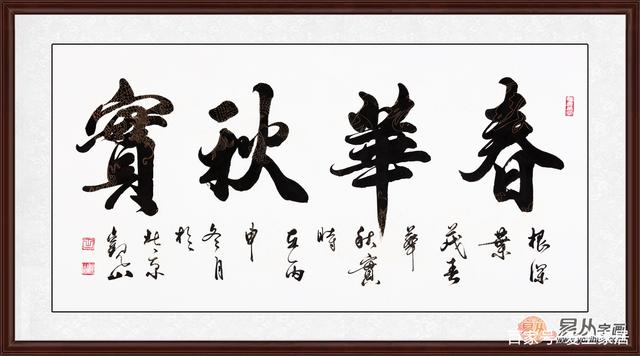 春華秋實
根深葉茂春華秋實時在丙申冬月於北京
易从字画
百家号